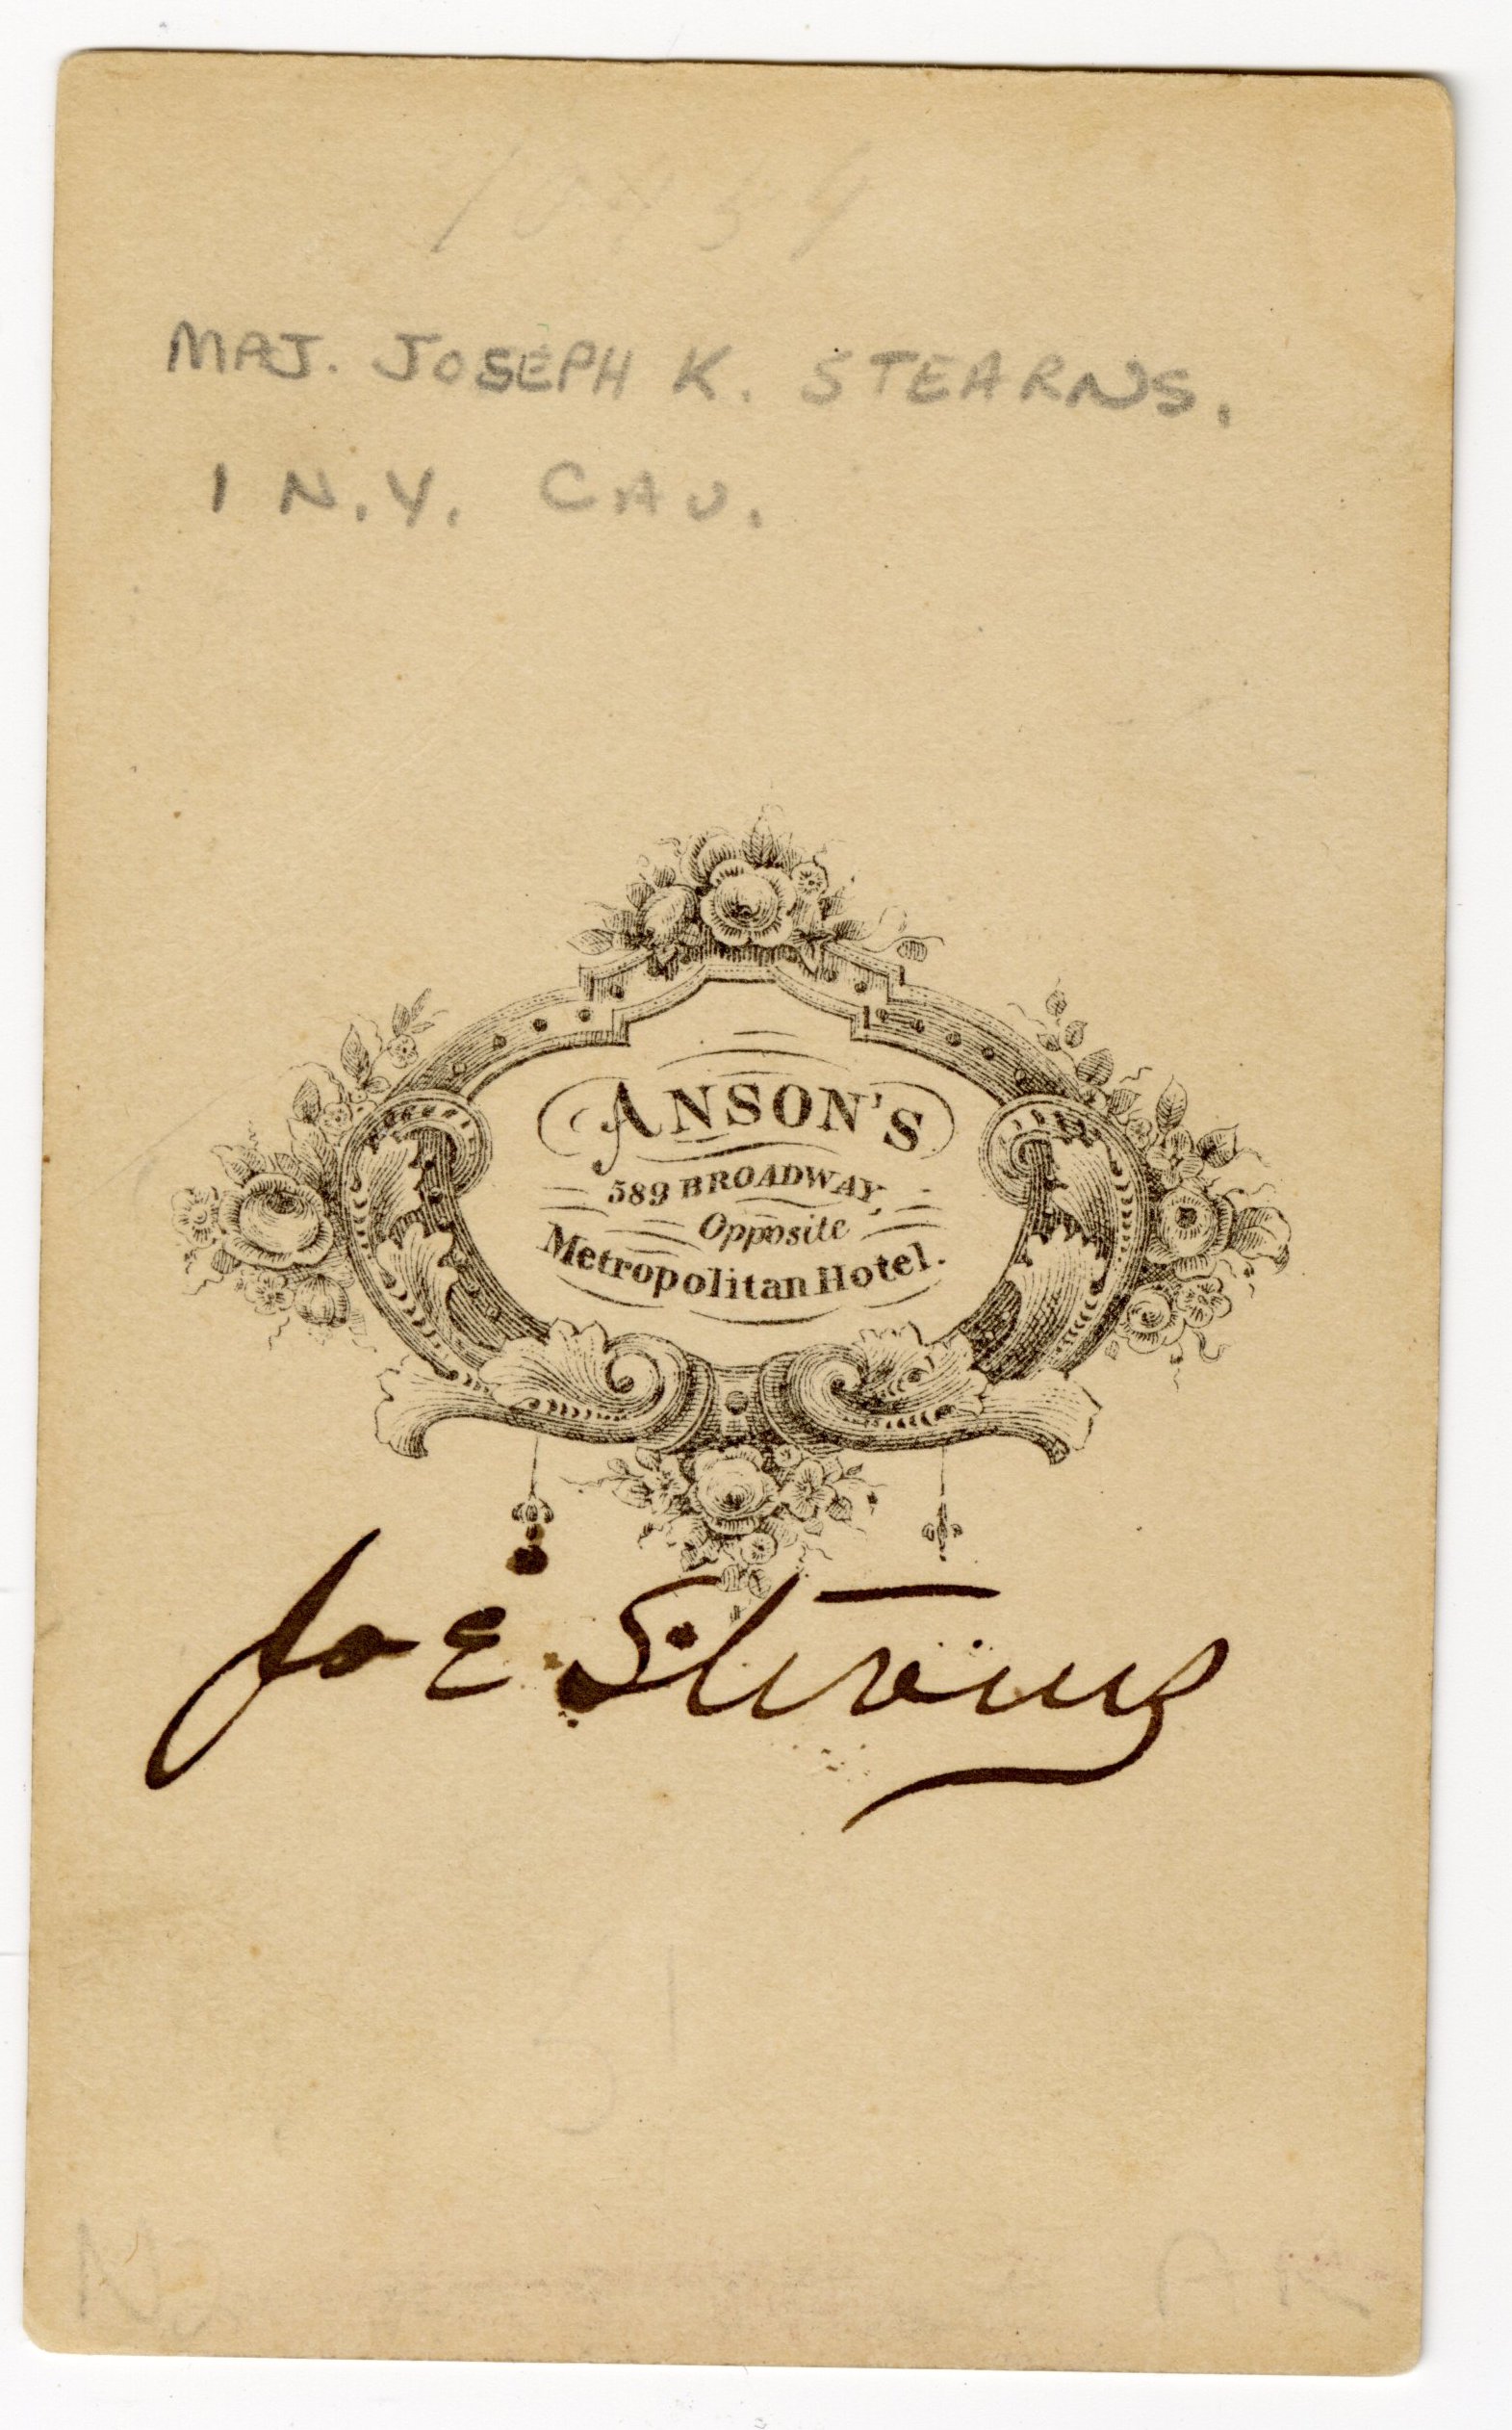 MAJ. JOSEPH K. STEARNS.
1 N.Y. CAV.
ANSON'S
589 BROADWAY,
Opposite
Metropolitan Hotel.
Joe Stearns